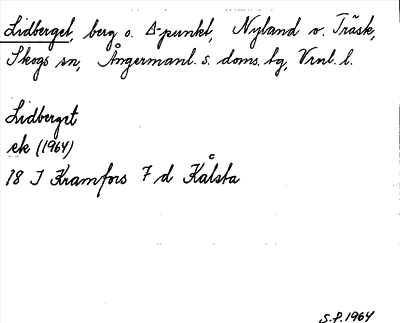 Lidberget, berg o. Δ-punkt, Nyland o. Träsk,
Skogs sn, Ångermanl. s. doms. hg, Vrnl. l.
Lidberget
ek (1964)
18 J Kramfors 7 d Kålsta
S.P. 1964